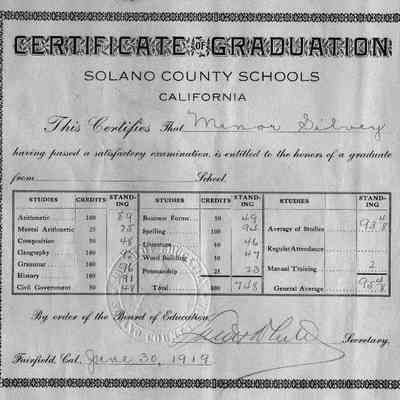 CERTIFICATE OF GRADUATION
SOLANO COUNTY SCHOOLS
CALIFORNIA
This Certifies That Minor Silvey
having passed a satisfactory examination, is entitled to the honors of a graduate
from School.
STUDIES CREDITS STANDING STUDIES CREDITS STANDING STUDIES STANDING
Arithmetic 100 89 Business Forms 50 49 Average of Studies 93 4/8
Mental Arithmetic 25 25 Spelling 100 94
Composition 50 48 Literature 50 46 Regular Attendance
Geography 100 Word Building 50 47
Grammar 100 96 Penmanship 25 23 Manual Training 2
History 100 91
Civil Government 50 48 Total 800 748 General Average 95 4/8
By order of the Board of Education
Secretary.
Fairfield, Cal. June 30, 1919